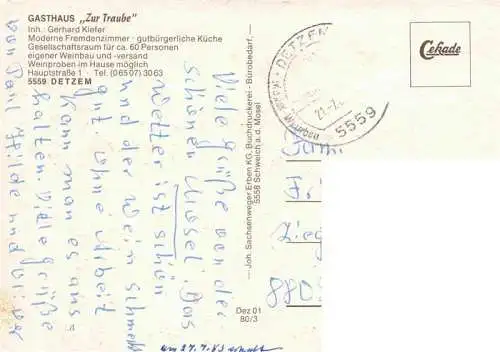 GASTHAUS „Zur Traube"
Inh.: Gerhard Kiefer
Moderne Fremdenzimmer · gutbürgerliche Küche
Gesellschaftsraum für ca. 60 Personen
eigener Weinbau und -versand
Weinproben im Hause möglich
Hauptstraße 1 · Tel. (06507) 3063
5559 DETZEM
Viele Grüße von der
schönen Mosel. Das
Wetter ist schön
und der Wein schmeckt
gut. Ohne Arbeit
kann man es aus-
halten. Viele Grüße
von Paul Hilde und
Joh. Sachsenweger Erben KG, Buchdruckerei - Bürobedarf,
5558 Schweich a. d. Mosel
Dez 01
80/3
DETZEM
5559
Cekade
Fam.
880
am 27.7.83 erhalt